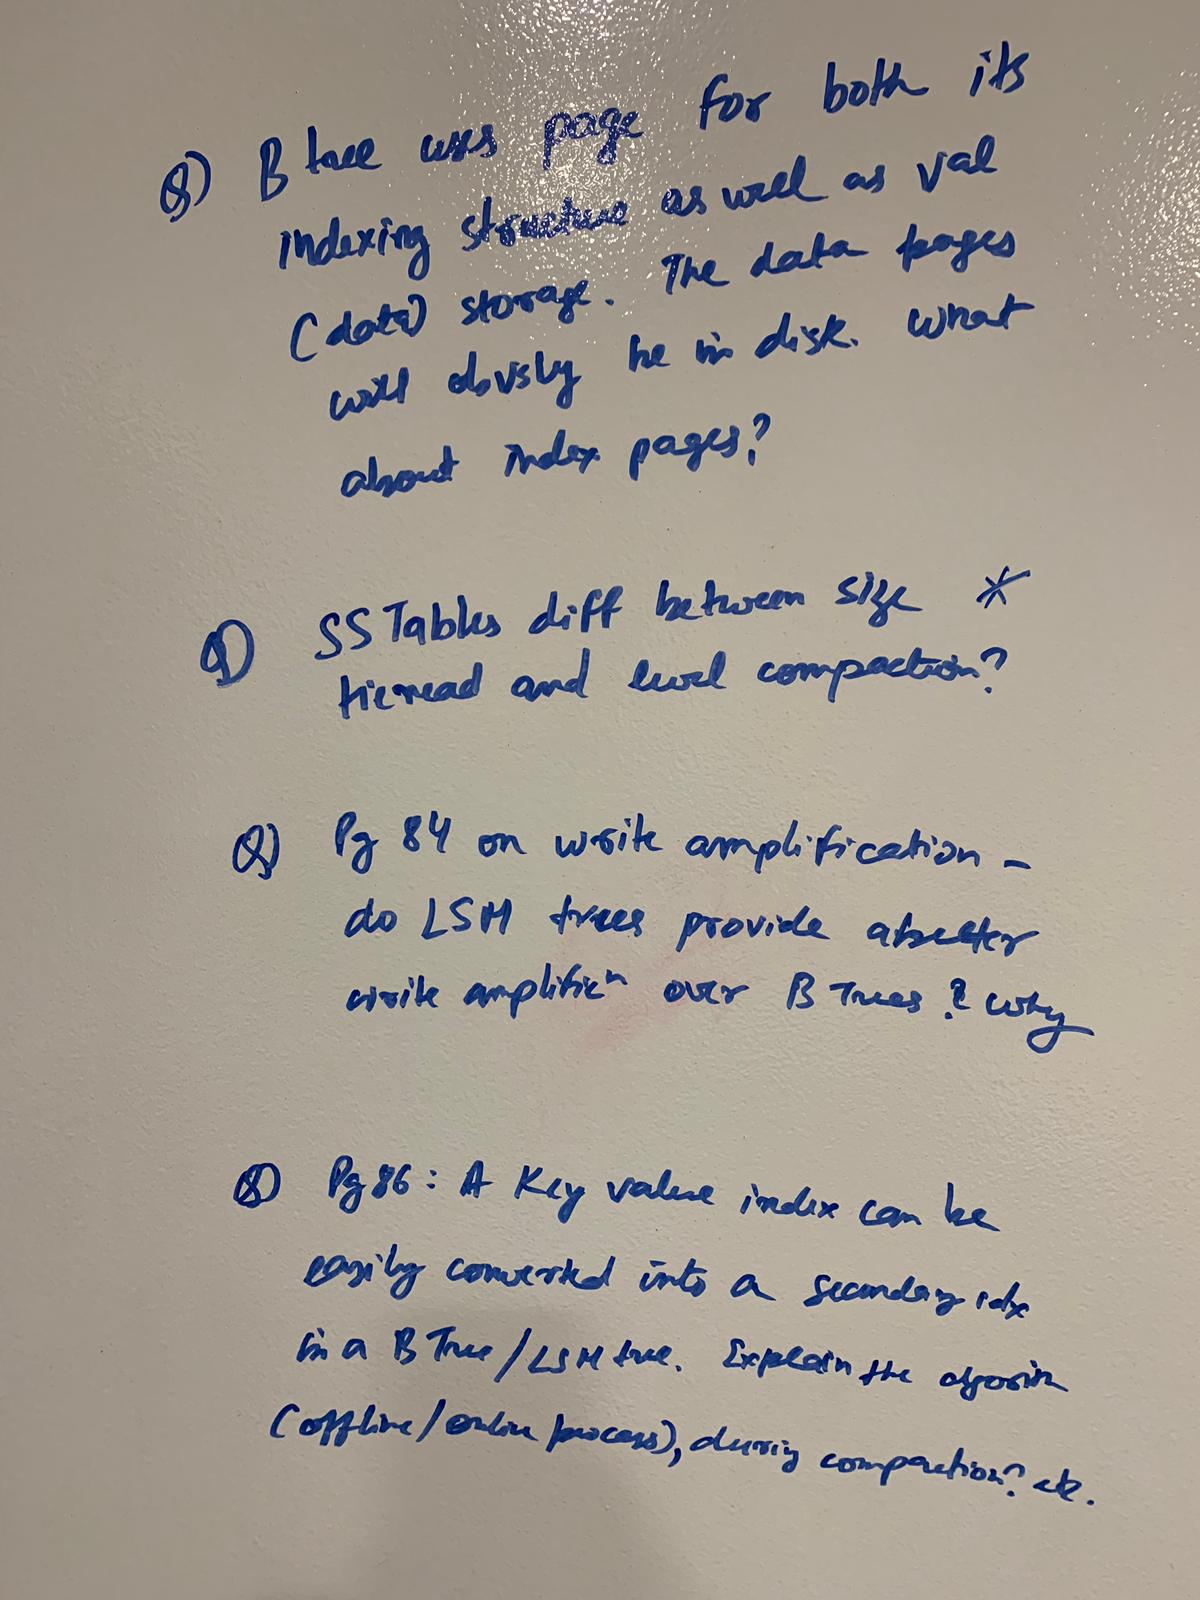 Q) B tree uses page for both its
indexing structure as well as val
(data) storage. The data pages
will obvsly be in disk. What
about index pages?
Q) SSTables diff between size *
tieread and level compaction?
Q) Pg 84 on write amplification -
do LSM trees provide a better
write amplificn over B Trees? Why
Q) Pg 86: A Key value index can be
easily converted into a secondary idx
in a B Tree/LSM tree. Explain the algorithm
(offline/online process), during compaction? etc.